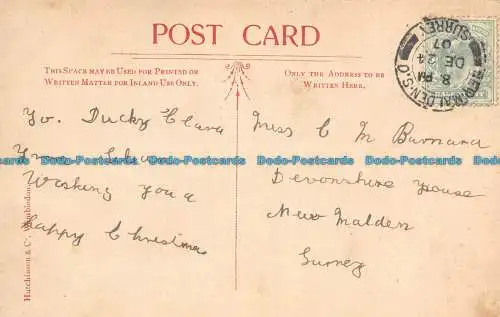 POST CARD
THIS SPACE MAY BE USED FOR PRINTED OR
WRITTEN MATTER FOR INLAND USE ONLY.
ONLY THE ADDRESS TO BE
WRITTEN HERE.
8 PM
DE 24
07
SURREY
To. Ducky Clara
Wishing you a
happy Christmas
Miss C M Barnard
Devonshire House
New Malden
Surrey
Hutchinson & Co., Wimbledon
Dodo-Postcards Dodo-Postcards Dodo-Postcards Dodo-Postcards